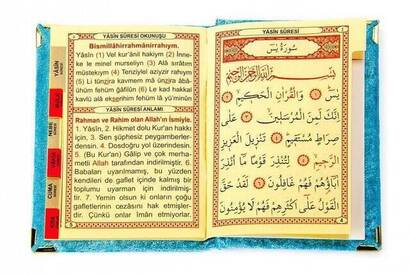 YÂSÎN SÛRESİ OKUNUŞU
Bismillâhirrahmânirrahıym.
Yâsîn (1) Vel kur'ânil hakiym (2) İnne-
ke le minel murselîyn (3) Alâ sırâtım
müstekıym (4) Tenziylel aziyzir rahıym
(5) Li tünzira kavmem mâ ünzira âbâ-
ühüm fehüm ğâfilûn (6) Le kad hakkal
kavlü alâ ekserihim fehüm lâ yü'minûn
YÂSÎN SÛRESİ ANLAMI
Rahman ve Rahim olan Allah'ın İsmiyle.
1. Yâsîn, 2. Hikmet dolu Kur'an hakkı
için, 3. Sen şüphesiz peygamberler-
densin. 4. Dosdoğru yol üzerindesin.
5. (Bu Kur'an) Gâlip ve çok merha-
metli Allah tarafından indirilmiştir. 6.
Babaları uyarılmamış, bu yüzden
kendileri de gaflet içinde kalmış bir
toplumu uyarman için indirilmiş-
tir. 7. Yemin olsun ki onların çoğu
gafletlerinin cezasını hak etmişler-
dir. Çünkü onlar îman etmiyorlar.
YÂSÎN SÛRESİ
سُورَةُ يٰسٓ
بِسْمِ اللّٰهِ الرَّحْمٰنِ الرَّحِيمِ
يٰسٓ ﴿١﴾ وَالْقُرْاٰنِ الْحَكِيمِ ﴿٢﴾
اِنَّكَ لَمِنَ الْمُرْسَلِينَ ﴿٣﴾ عَلٰى
صِرَاطٍ مُسْتَقِيمٍ ﴿٤﴾ تَنْزِيلَ الْعَزِيزِ
الرَّحِيمِ ﴿٥﴾ لِتُنْذِرَ قَوْمًا مَٓا اُنْذِرَ
اٰبَٓاؤُهُمْ فَهُمْ غَافِلُونَ ﴿٦﴾ لَقَدْ حَقَّ
الْقَوْلُ عَلٰٓى اَكْثَرِهِمْ فَهُمْ لَا يُؤْمِنُونَ
YÂSÎN
CUMA